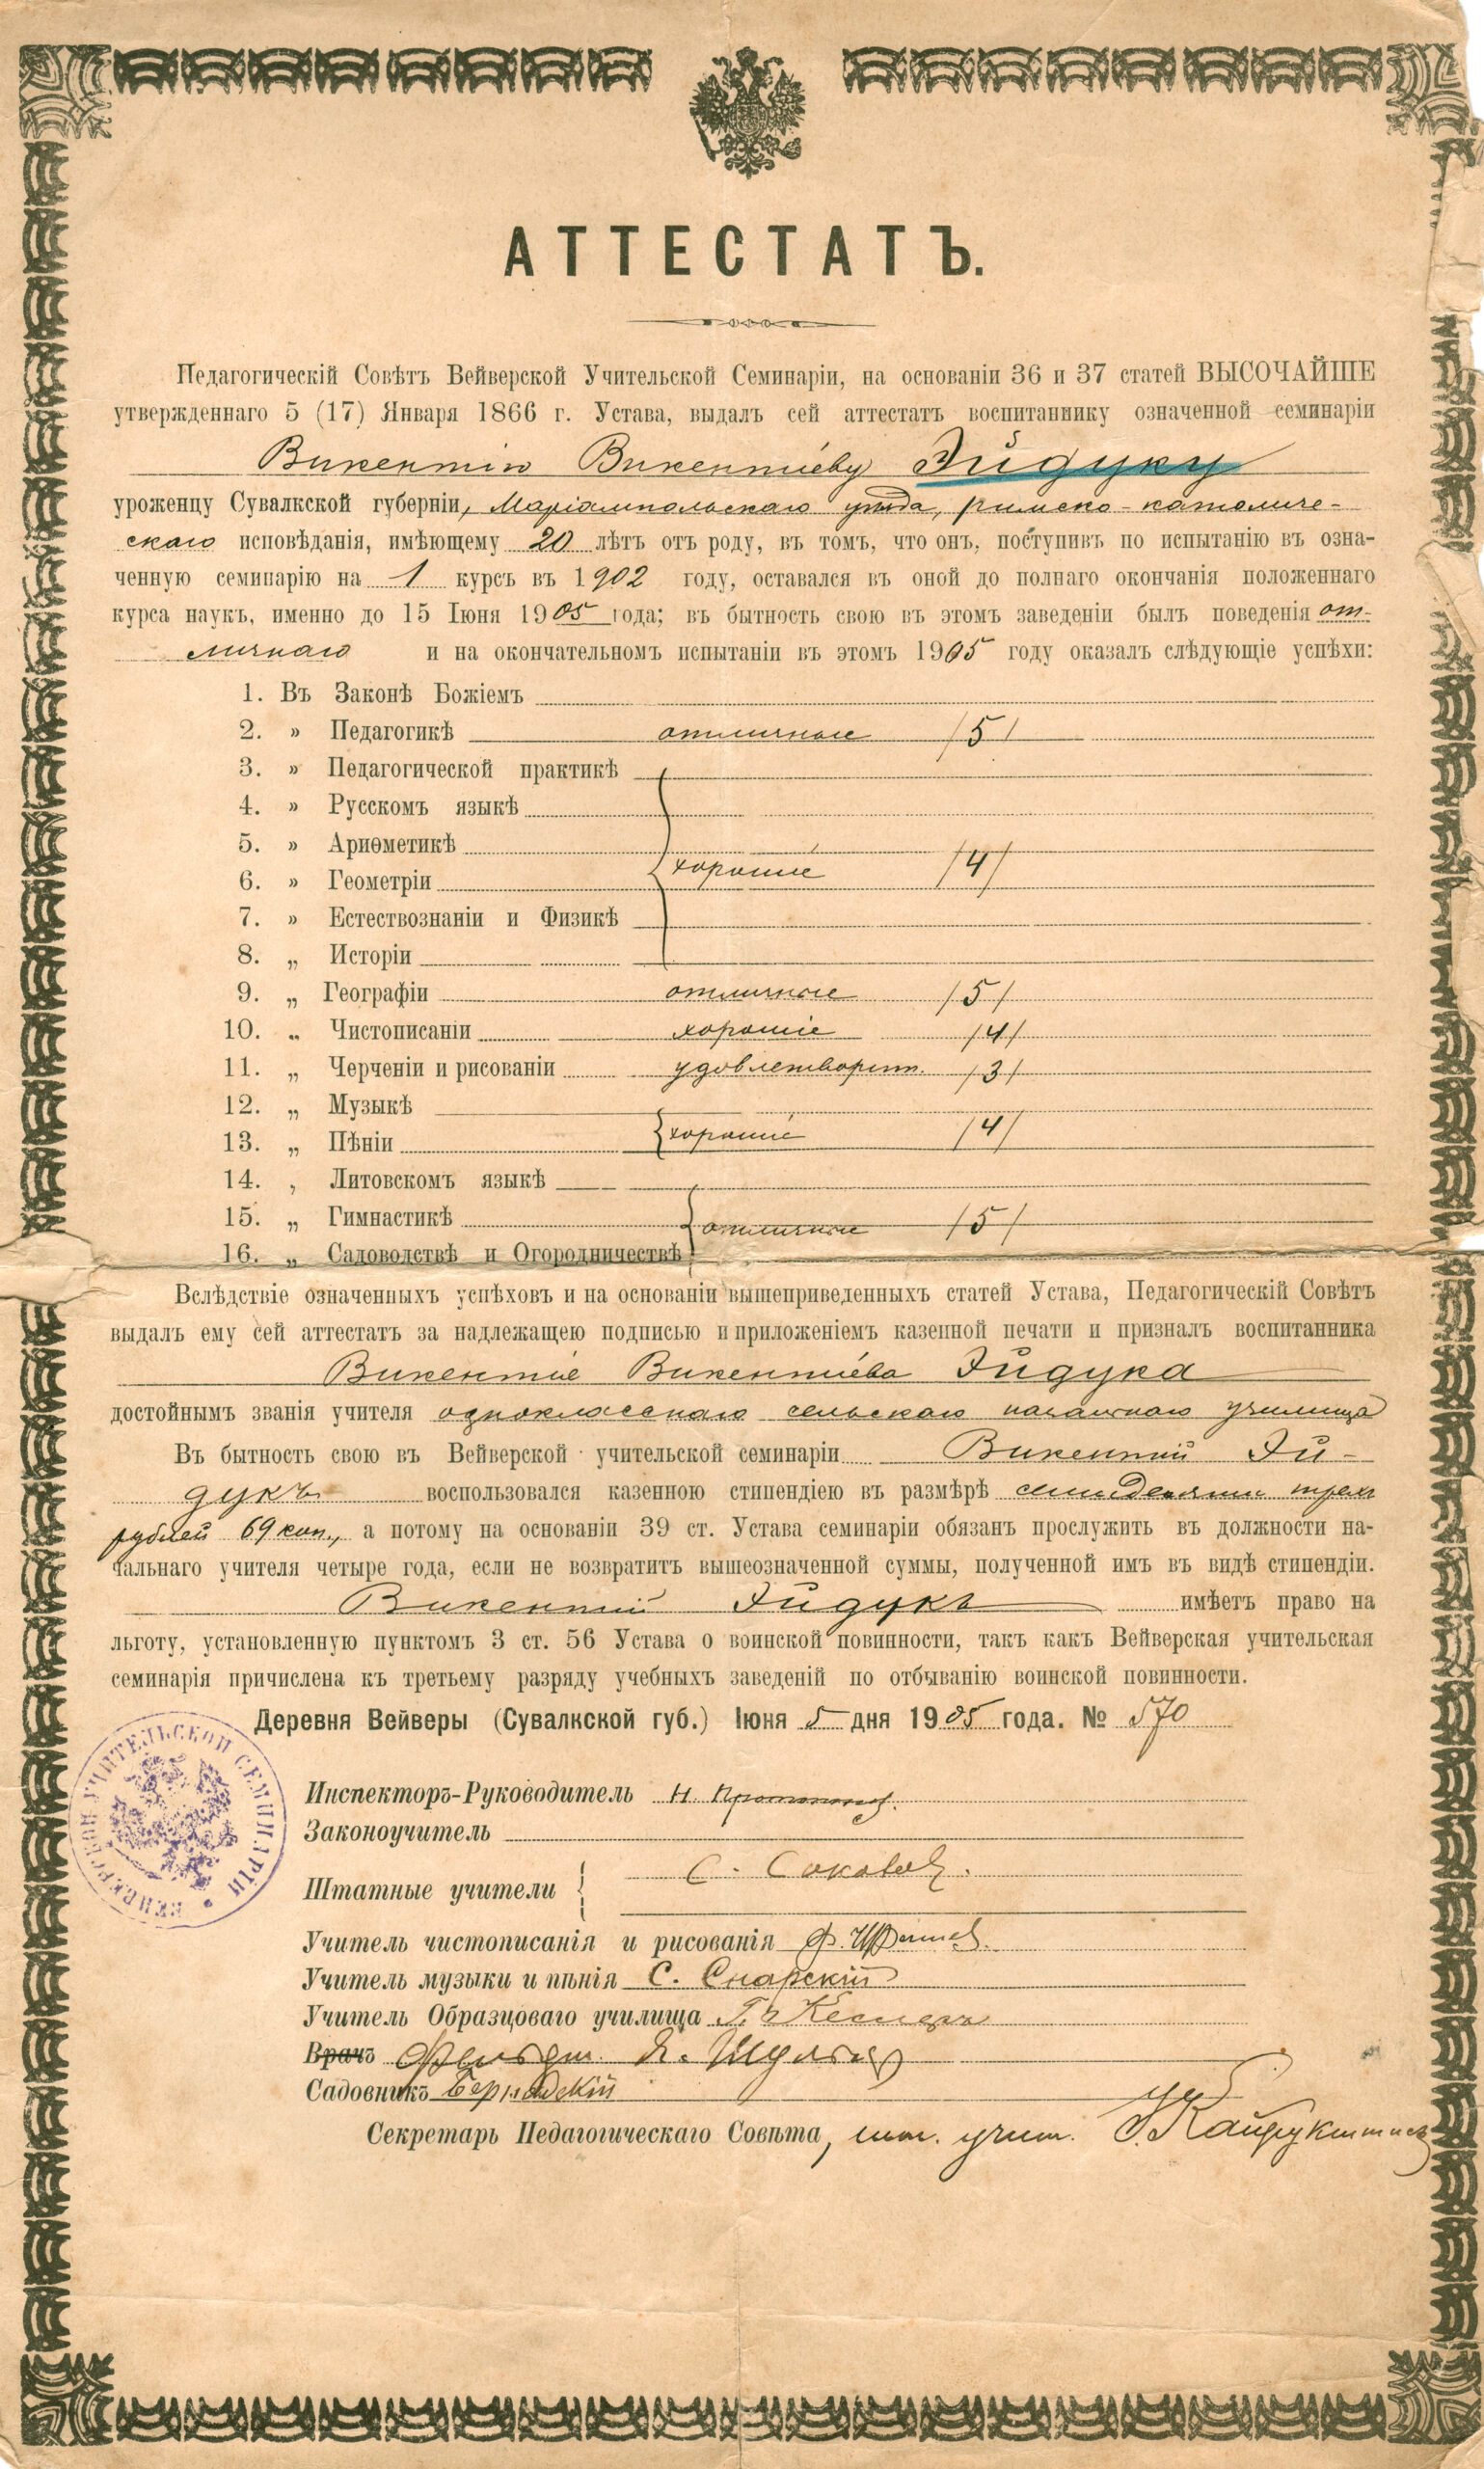 АТТЕСТАТЪ.
Педагогическій Совѣтъ Вейверской Учительской Семинаріи, на основаніи 36 и 37 статей ВЫСОЧАЙШЕ
утвержденнаго 5 (17) Января 1866 г. Устава, выдалъ сей аттестатъ воспитаннику означенной семинаріи
Викентію Викентіеву Эйдуку
уроженцу Сувалкской губерніи, Маріампольскаго уѣзда, римско-католиче-
скаго исповѣданія, имѣющему 20 лѣтъ отъ роду, въ томъ, что онъ, поступивъ по испытанію въ озна-
ченную семинарію на 1 курсъ въ 1902 году, оставался въ оной до полнаго окончанія положеннаго
курса наукъ, именно до 15 Іюня 1905 года; въ бытность свою въ этомъ заведеніи былъ поведенія от-
личнаго и на окончательномъ испытаніи въ этомъ 1905 году оказалъ слѣдующіе успѣхи:
1. Въ Законѣ Божіемъ
2. » Педагогикѣ отличные /5/
3. » Педагогической практикѣ
4. » Русскомъ языкѣ
5. » Ариѳметикѣ
6. » Геометріи хорошіе /4/
7. » Естествознаніи и Физикѣ
8. „ Исторіи
9. „ Географіи отличные /5/
10. „ Чистописаніи хорошіе /4/
11. „ Черченіи и рисованіи удовлетворит. /3/
12. „ Музыкѣ
13. „ Пѣніи хорошіе /4/
14. „ Литовскомъ языкѣ
15. „ Гимнастикѣ отличные /5/
16. „ Садоводствѣ и Огородничествѣ
Вслѣдствіе означенныхъ успѣховъ и на основаніи вышеприведенныхъ статей Устава, Педагогическій Совѣтъ
выдалъ ему сей аттестатъ за надлежащею подписью и приложеніемъ казенной печати и призналъ воспитанника
Викентіе Викентіева Эйдука
достойнымъ званія учителя одноклассного сельскаго начальнаго училища
Въ бытность свою въ Вейверской учительской семинаріи Викентій Эй-
дукъ воспользовался казенною стипендіею въ размѣрѣ семидесяти трехъ
рублей 69 коп., а потому на основаніи 39 ст. Устава семинаріи обязанъ прослужить въ должности на-
чальнаго учителя четыре года, если не возвратитъ вышеозначенной суммы, полученной имъ въ видѣ стипендіи.
Викентій Эйдукъ имѣетъ право на
льготу, установленную пунктомъ 3 ст. 56 Устава о воинской повинности, такъ какъ Вейверская учительская
семинарія причислена къ третьему разряду учебныхъ заведеній по отбыванію воинской повинности.
Деревня Вейверы (Сувалкской губ.) Іюня 5 дня 1905 года. № 570
ВЕЙВЕРСКОЙ УЧИТЕЛЬСКОЙ СЕМИНАРІИ
Инспекторъ-Руководитель Н.
Законоучитель
Штатные учители С. Соколов.
Учитель чистописанія и рисованія Ф.
Учитель музыки и пѣнія С. Снарскій
Учитель Образцоваго училища
Врачъ Фельдш. Шульц
Садовникъ Бернадскій
Секретарь Педагогическаго Совѣта, шт. учит. Кайрукштисъ